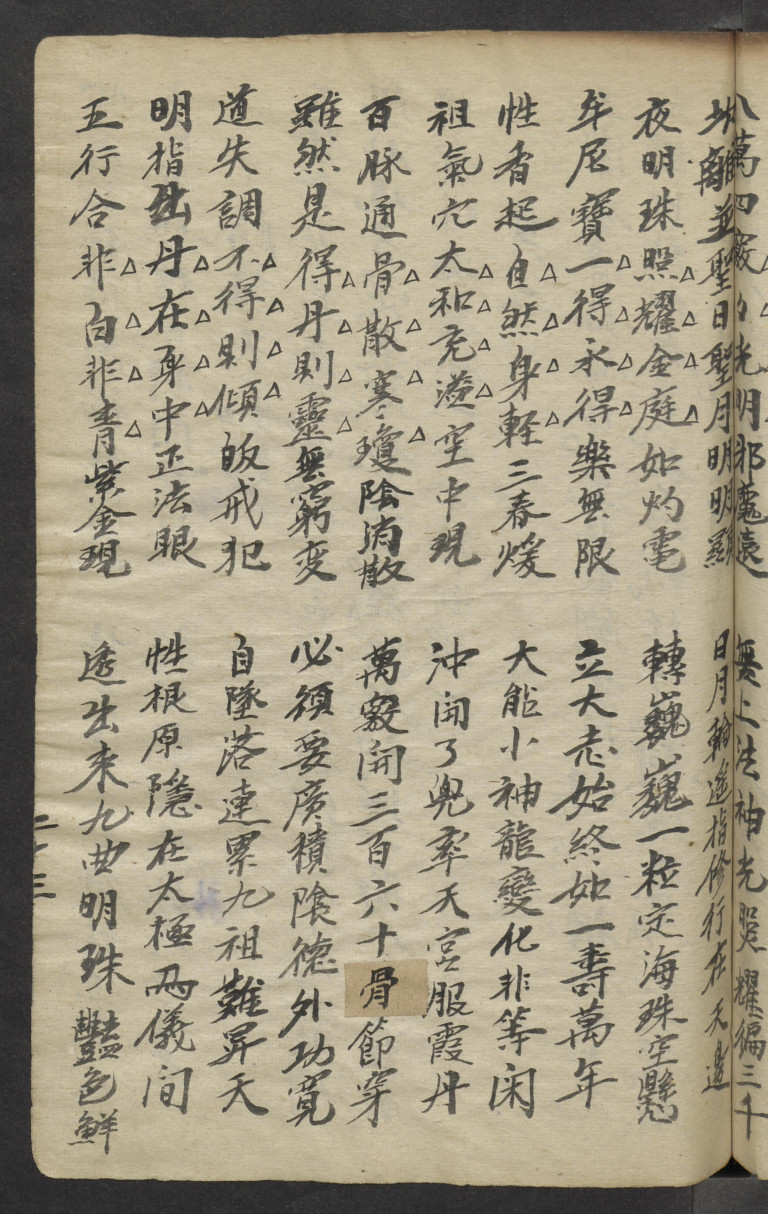 八萬四竅 光明邪魔遠　無上法神光照耀徧三千
坎離並聖日聖月明明顯　日月輪遙指修行在天邊
夜明珠照耀金庭如灼電　轉巍巍一粒定海珠空懸
牟尼寶一得永得樂無限　立大志始終如一壽萬年
性香起自然身軽三春煖　大能小神龍變化非等闲
祖氣穴太和充溢空中現　沖開了兜率天宮服霞丹
百脉通骨散寒瓊陰消散　萬竅開三百六十骨節穿
雖然是得丹則靈無窮变　必須要廣積陰德外功寬
道失調不得則傾皈戒犯　自墜落連累九祖難昇天
明指出丹在身中正法眼　性根原隱在太極両儀间
五行合非白非青紫金現　透出来九曲明珠豔色鮮
二十三